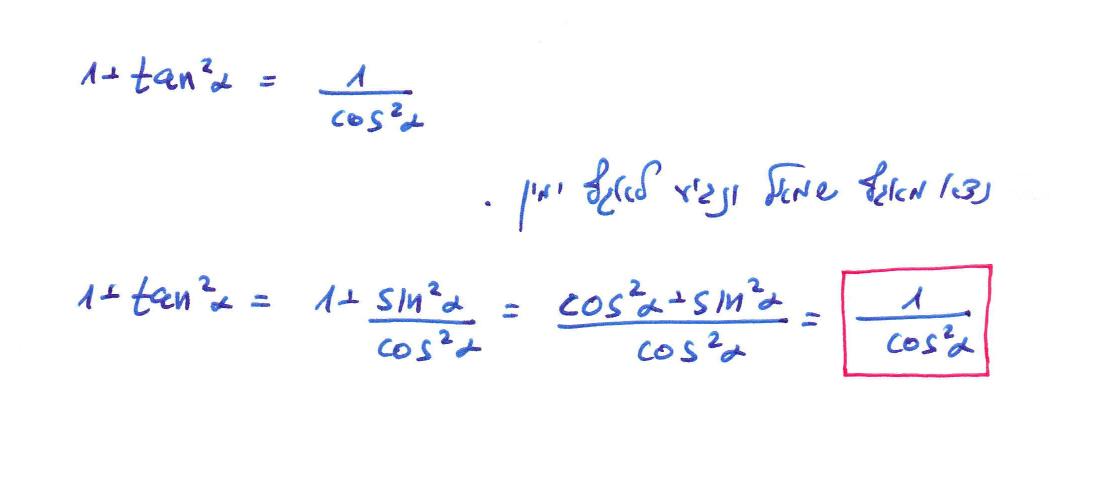 1+tan²α = 1/cos²α
נצא מאגף שמאל ונגיע לאגף ימין.
1+tan²α = 1+ sin²α/cos²α = cos²α+sin²α/cos²α = 1/cos²α